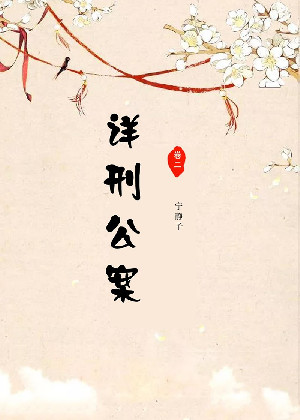 详刑公案
卷二
宁静子